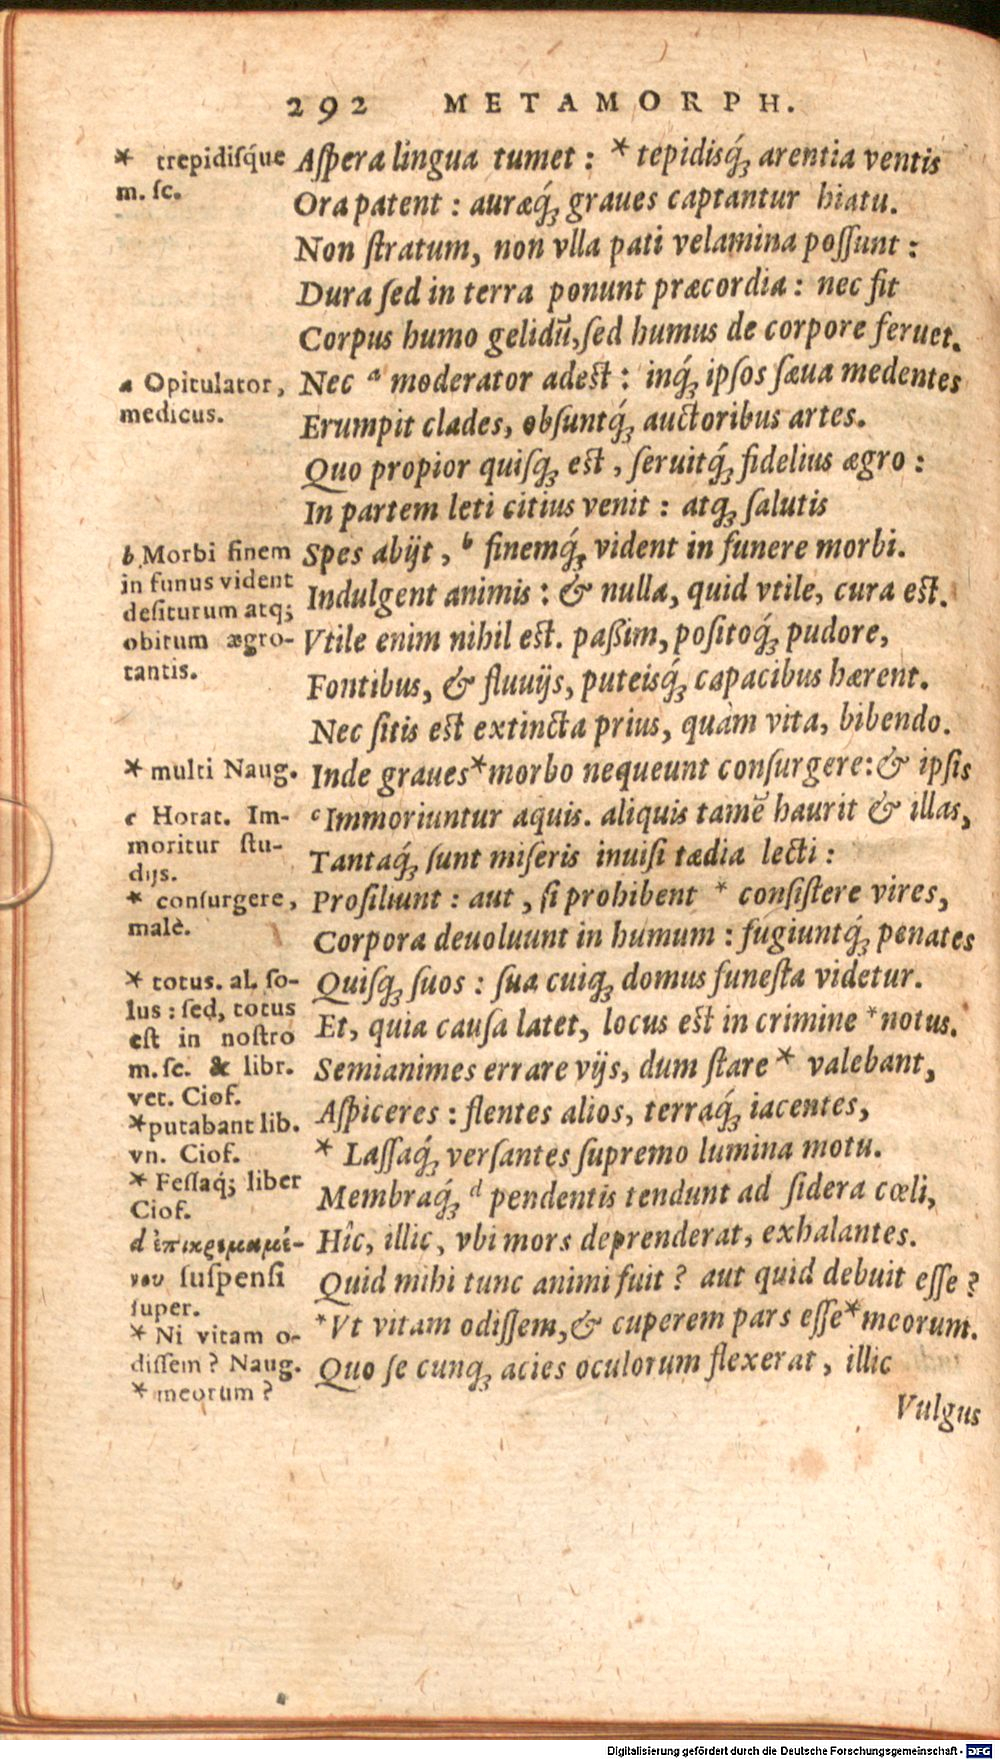 292 METAMORPH.
* trepidisq́ue
m. ſc.
a Opitulator,
medicus.
b Morbi finem
in funus vident
deſiturum atq;
obitum ægro-
tantis.
* multi Naug.
c Horat. Im-
moritur ſtu-
dijs.
* conſurgere,
malè.
* totus. al. ſo-
lus: ſed, totus
est in noſtro
m. ſc. & libr.
vet. Ciof.
*putabant lib.
vn. Ciof.
* Feſſaq́; liber
Ciof.
d ἐπικρεμαμέ-
νου ſuſpenſi
ſuper.
* Ni vitam o-
diſſem? Naug.
* meorum?
Aſpera lingua tumet: * tepidisq́ꝫ arentia ventis
Ora patent: auræq́ꝫ graues captantur hiatu.
Non ſtratum, non vlla pati velamina poſſunt:
Dura ſed in terra ponunt præcordia: nec fit
Corpus humo gelidũ, ſed humus de corpore feruet.
Nec a moderator adest: inq́ꝫ ipſos ſæua medentes
Erumpit clades, obſuntq́ꝫ auctoribus artes.
Quo propior quiſqꝫ est, ſeruitq́ꝫ fidelius ægro:
In partem leti citius venit: atqꝫ ſalutis
Spes abijt, b finemq́ꝫ vident in funere morbi.
Indulgent animis: & nulla, quid vtile, cura est.
Vtile enim nihil est. paßim, poſitoq́ꝫ pudore,
Fontibus, & fluuijs, puteisq́ꝫ capacibus hærent.
Nec ſitis est extincta prius, quàm vita, bibendo.
Inde graues * morbo nequeunt conſurgere: & ipſis
c Immoriuntur aquis. aliquis tamẽ haurit & illas,
Tantaq́ꝫ ſunt miſeris inuiſi tædia lecti:
Proſiliunt: aut, ſi prohibent * conſiſtere vires,
Corpora deuoluunt in humum: fugiuntq́ꝫ penates
Quiſqꝫ ſuos: ſua cuiqꝫ domus funeſta videtur.
Et, quia cauſa latet, locus est in crimine * notus.
Semianimes errare vijs, dum ſtare * valebant,
Aſpiceres: flentes alios, terraq́ꝫ iacentes,
* Laſſaq́ꝫ verſantes ſupremo lumina motu.
Membraq́ꝫ d pendentis tendunt ad ſidera cœli,
Hîc, illic, vbi mors deprenderat, exhalantes.
Quid mihi tunc animi fuit? aut quid debuit eſſe?
* Vt vitam odiſſem, & cuperem pars eſſe * meorum.
Quo ſe cunqꝫ acies oculorum flexerat, illic
Vulgus
Digitalisierung gefördert durch die Deutsche Forschungsgemeinschaft - DFG